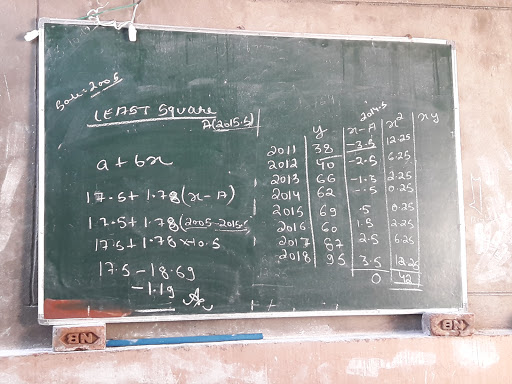 Sale:- 2005
LEAST Square
A(2015.5)
a + bx
17.5 + 1.78 (x - A)
17.5 + 1.78 (2005 - 2015.5)
17.5 + 1.78 x -10.5
17.5 - 18.69
- 1.19
2014.5
y x-A x² xy
2011 38 -3.5 12.25
2012 40 -2.5 6.25
2013 66 -1.5 2.25
2014 62 -.5 0.25
2015 69 .5 0.25
2016 60 1.5 2.25
2017 87 2.5 6.25
2018 95 3.5 12.25
0 42
BN
BN